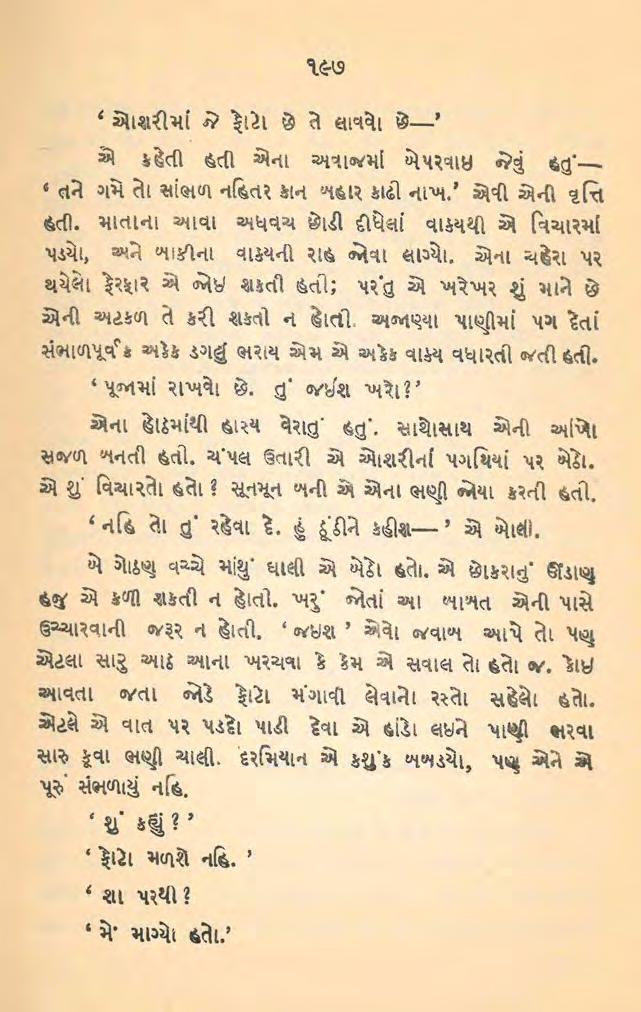 ૧૯૭
‘ ઓશરીમાં જે ફોટો છે તે લાવવો છે—’
એ કહેતી હતી એના અવાજમાં બેપરવાઇ જેવું હતું—
‘ તને ગમે તો સાંભળ નહિતર કાન બહાર કાઢી નાખ.’ એવી એની વૃત્તિ
હતી. માતાના આવા અધવચ છોડી દીધેલાં વાક્યથી એ વિચારમાં
પડ્યો, અને બાકીના વાક્યની રાહ જોવા લાગ્યો. એના ચહેરા પર
થયેલો ફેરફાર એ જોઇ શકતી હતી; પરંતુ એ ખરેખર શું માને છે
એની અટકળ તે કરી શકતી ન હોતી. અજાણ્યા પાણીમાં પગ દેતાં
સંભાળપૂર્વક અકેક ડગલું ભરાય એમ એ અકેક વાક્ય વધારતી જતી હતી.
‘ પૂજામાં રાખવો છે. તું જઇશ ખરો?’
એના હોઠમાંથી હાસ્ય વેરાતું હતું. સાથોસાથ એની આંખો
સજળ બનતી હતી. ચંપલ ઉતારી એ ઓશરીનાં પગથિયાં પર બેઠો.
એ શું વિચારતો હતો ? સૂનમૂન બની એ એના ભણી જોયા કરતી હતી.
‘ નહિ તો તું રહેવા દે. હું ઠૂંઠીને કહીશ— ’ એ બોલી.
બે ગોઠણ વચ્ચે માથું ઘાલી એ બેઠો હતો. એ છોકરાનું ઊંડાણ
હજુ એ કળી શકતી ન હોતી. ખરું જોતાં આ બાબત એની પાસે
ઉચ્ચારવાની જરૂર ન હોતી. ‘ જઇશ ’ એવો જવાબ આપે તો પણ
એટલા સારુ આઠ આના ખરચવા કે કેમ એ સવાલ તો હતો જ. કોઇ
આવતા જતા જોડે ફોટો મંગાવી લેવાનો રસ્તો સહેલો હતો.
એટલે એ વાત પર પડદો પાડી દેવા એ હાંડો લઇને પાણી ભરવા
સારુ કૂવા ભણી ચાલી. દરમિયાન એ કશુંક બબડ્યો, પણ એને એ
પૂરું સંભળાયું નહિ.
‘ શું કહ્યું ? ’
‘ ફોટો મળશે નહિ. ’
‘ શા પરથી ?
‘ મેં માગ્યો હતો.’